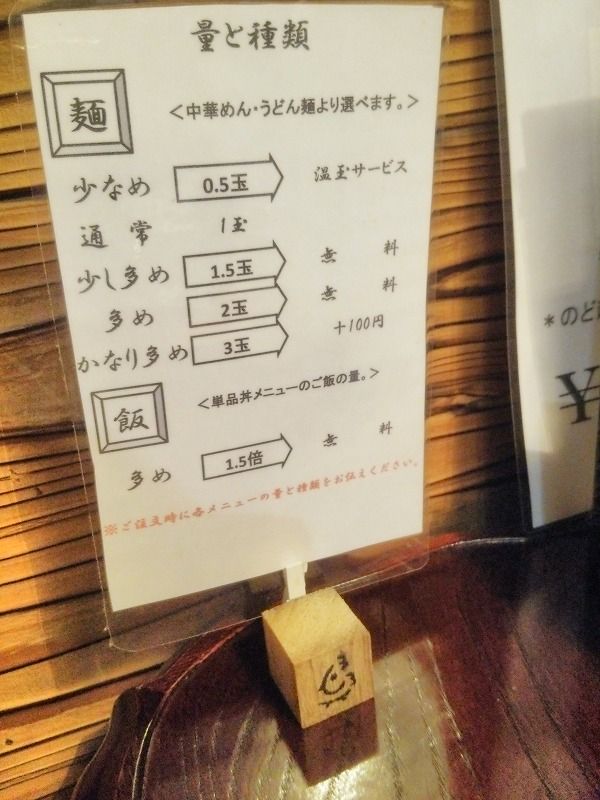 量と種類
麺 <中華めん・うどん麺より選べます。>
少なめ 0.5玉 温玉サービス
通常 1玉
少し多め 1.5玉 無料
多め 2玉 無料
かなり多め 3玉 +100円
飯 <単品丼メニューのご飯の量。>
多め 1.5倍 無料
※ご注文時に各メニューの量と種類をお伝えください。
*のど
¥